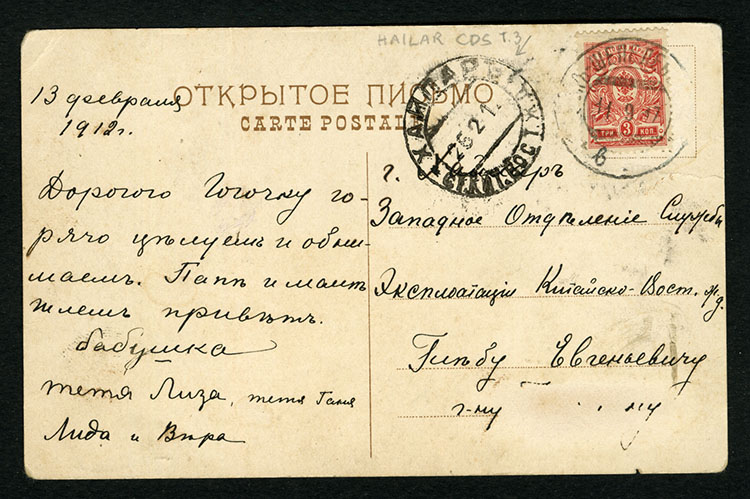 HAILAR CDS T.3
ОТКРЫТОЕ ПИСЬМО
CARTE POSTALE
13 февраля
1912г.
Дорогого Гогочку го-
рячо цѣлуемъ и обни-
маемъ. Папѣ и мамѣ
шлемъ привѣтъ.
бабушка
тетя Лиза, тетя Ганя
Лида и Вѣра
ХАЙЛАРЪ
26 2 1
ТРИ 3 КОП.
г.
Западное Отдѣленіе Службы
Эксплоатаціи Китайско-Вост. ж.д.
Глѣбу Евгеньевичу
г-ну